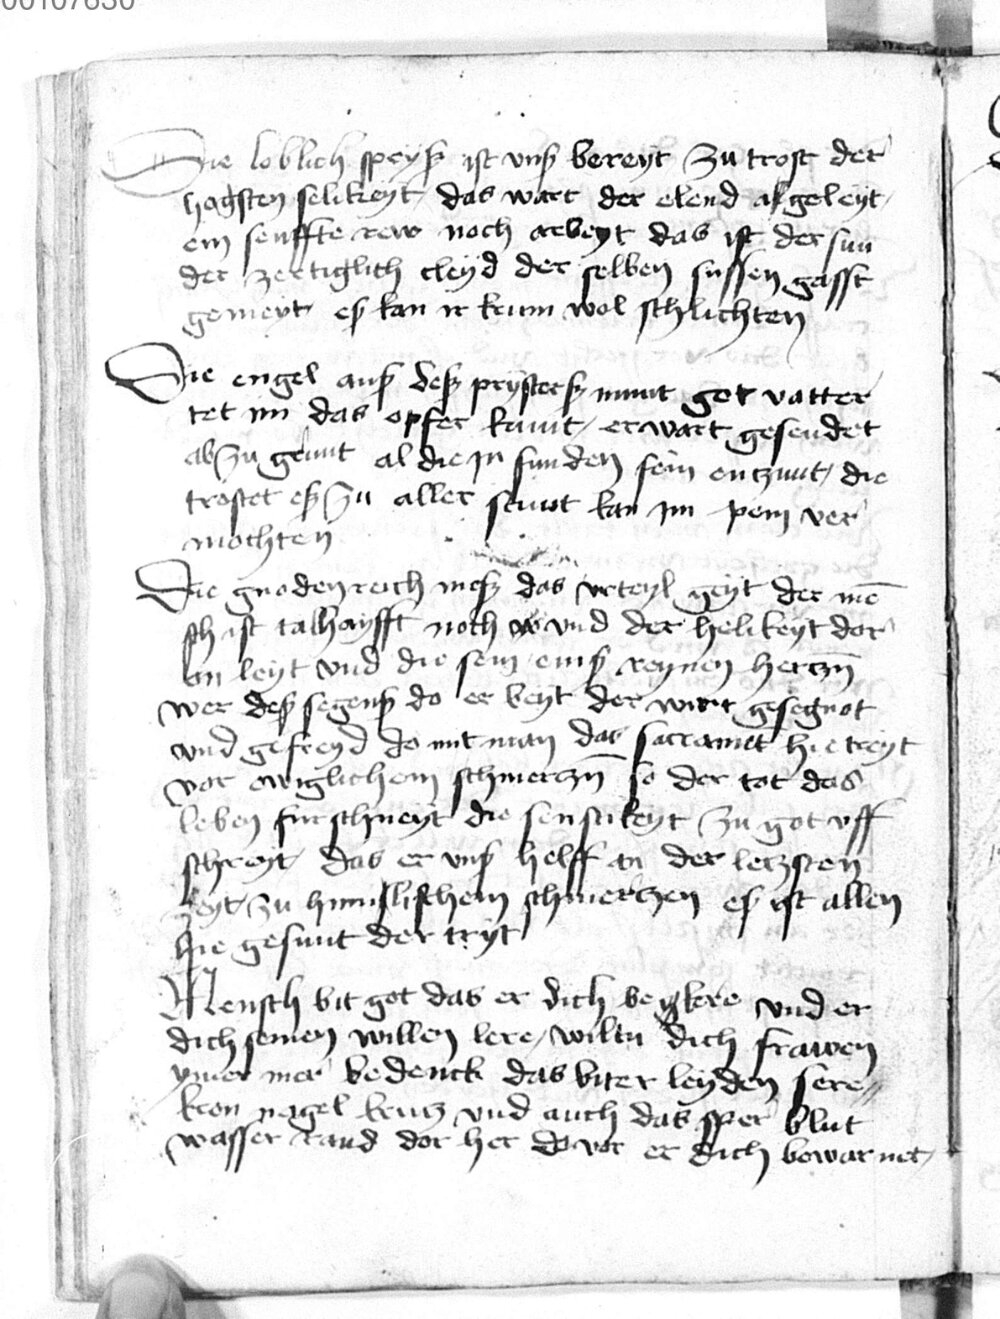 00107630
Die loblich speyß ist vnß bereyt zu trost der
hogsten selikeyt das wart der elend abgeleyt
ein senffte rew noch arbeyt das ist der sun
der zertiglich cleyd der selben sussen gasst
gemeyt eß kan ir krum wol schlichten
Die engel auß deß prysterß munt got vatter
tet im das opfer kunt / er wart gesendet
ab zu grunt al die in sunden sein enczunt / die
trostet eß zu aller stunt kan im pein ver
mochten
Die gnodenreich meß das vrteyl geyt der mē
sch ist talhafft noch vnd der helikeyt dor
an leyt vnd die sein einß reynen herczn̄
wer deß segenß do er beyt der wirt gesegnot
vnd gefreyd do mit man das sacramēt hie treyt
vor ewiglichem schmerczn̄ so der tot das
leben fur schneyt die senftikeyt zu got vff
schreyt das er vnß helff an der leczsten
zeyt zu himlischem schmerczen eß ist allen
hie gesunt der tryt
Mensch bit got das er dich bekere vnd er
dich seinen willen lere / wiltu dich frawen
ymer mer bedenck das biter leyden sere
kron negel krucz vnd auch das sper blut
wasser rand dor her do vor er dich bewar net